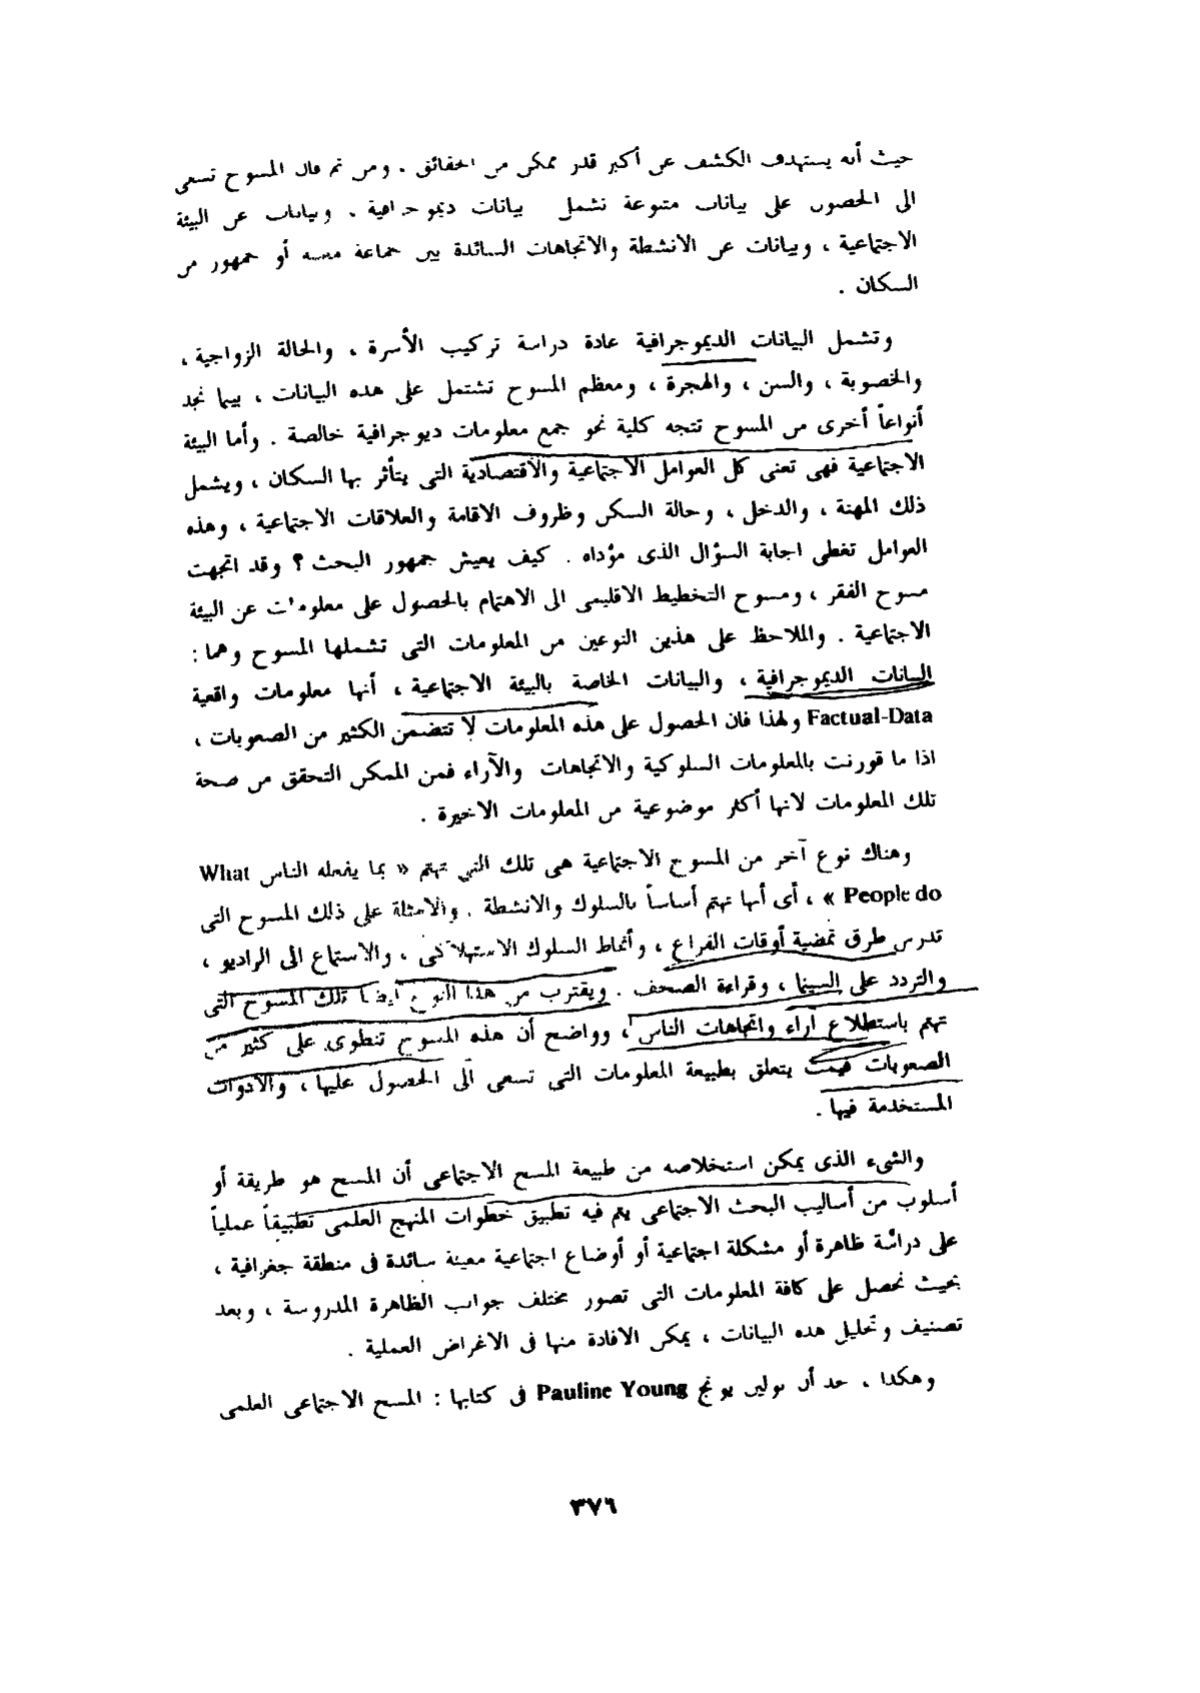 حيث أنه يستهدف الكشف عن أكبر قدر ممكن من الحقائق . ومن ثم فان المسوح تسعى
الى الحصول على بيانات متنوعة تشمل بيانات ديموجرافية . وبيانات عن البيئة
الاجتماعية ، وبيانات عن الانشطة والاتجاهات السائدة بين جماعة معينة أو جمهور من
السكان .
وتشمل البيانات الديموجرافية عادة دراسة تركيب الأسرة ، والحالة الزواجية ،
والخصوبة ، والسن ، والهجرة ، ومعظم المسوح تشتمل على هذه البيانات ، بينما نجد
أنواعاً أخرى من المسوح تتجه كلية نحو جمع معلومات ديوجرافية خالصة . وأما البيئة
الاجتماعية فهى تعنى كل العوامل الاجتماعية والاقتصادية التى يتأثر بها السكان ، ويشمل
ذلك المهنة ، والدخل ، وحالة السكن وظروف الاقامة والعلاقات الاجتماعية ، وهذه
العوامل تغطى اجابة السؤال الذى مؤداه . كيف يعيش جمهور البحث ؟ وقد اتجهت
مسوح الفقر ، ومسوح التخطيط الاقليمى الى الاهتمام بالحصول على معلومات عن البيئة
الاجتماعية . والملاحظ على هذين النوعين من المعلومات التى تشملها المسوح وهما :
البيانات الديموجرافية ، والبيانات الخاصة بالبيئة الاجتماعية ، أنها معلومات واقعية
Factual-Data ولهذا فان الحصول على هذه المعلومات لا تتضمن الكثير من الصعوبات ،
اذا ما قورنت بالمعلومات السلوكية والاتجاهات والآراء فمن الممكن التحقق من صحة
تلك المعلومات لانها أكثر موضوعية من المعلومات الاخيرة .
وهناك نوع آخر من المسوح الاجتماعية هى تلك التى تهتم « بما يفعله الناس What
People do » ، أى أنها تهتم أساساً بالسلوك والانشطة . والامثلة على ذلك المسوح التى
تدرس طرق تمضية أوقات الفراغ ، وأنماط السلوك الاستهلاكى ، والاستماع الى الراديو ،
والتردد على السينما ، وقراءة الصحف . ويقترب من هذا النوع أيضا تلك المسوح التى
تهتم باستطلاع آراء واتجاهات الناس ، وواضح أن هذه المسوح تنطوى على كثير من
الصعوبات فيما يتعلق بطبيعة المعلومات التى تسعى الى الحصول عليها ، والادوات
المستخدمة فيها .
والشىء الذى يمكن استخلاصه من طبيعة المسح الاجتماعى أن المسح هو طريقة أو
أسلوب من أساليب البحث الاجتماعى يتم فيه تطبيق خطوات المنهج العلمى تطبيقاً عملياً
على دراسة ظاهرة أو مشكلة اجتماعية أو أوضاع اجتماعية معينة سائدة فى منطقة جغرافية ،
بحيث نحصل على كافة المعلومات التى تصور مختلف جوانب الظاهرة المدروسة ، وبعد
تصنيف وتحليل هذه البيانات ، يمكن الافادة منها فى الاغراض العملية .
وهكذا ، نجد أن بولين يونج Pauline Young فى كتابها : المسح الاجتماعى العلمى
٣٧٦